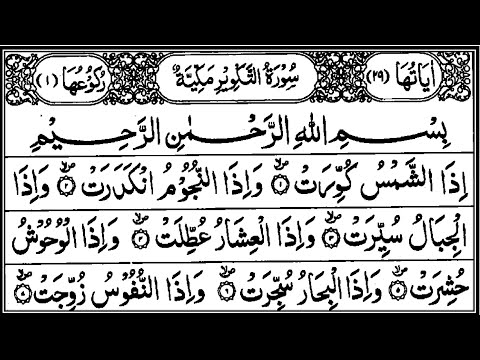 اٰيَاتُهَا (٢٩) سُوْرَةُ التَّكْوِيْرِ مَكِّيَّةٌ رُكُوْعُهَا (١)
بِسْمِ اللهِ الرَّحْمٰنِ الرَّحِيْمِ
اِذَا الشَّمْسُ كُوِّرَتْ ۙ﴿١﴾ وَاِذَا النُّجُوْمُ انْكَدَرَتْ ۙ﴿٢﴾ وَاِذَا
الْجِبَالُ سُيِّرَتْ ۙ﴿٣﴾ وَاِذَا الْعِشَارُ عُطِّلَتْ ۙ﴿٤﴾ وَاِذَا الْوُحُوْشُ
حُشِرَتْ ۙ﴿٥﴾ وَاِذَا الْبِحَارُ سُجِّرَتْ ۙ﴿٦﴾ وَاِذَا النُّفُوْسُ زُوِّجَتْ ۙ﴿٧﴾